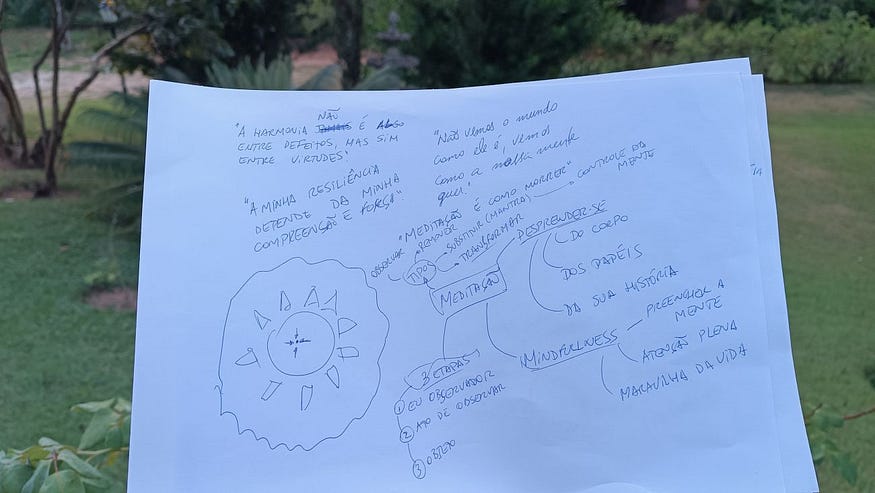 NÃO
"A HARMONIA É
ENTRE DEFEITOS, MAS SIM
ENTRE VIRTUDES"
"Não vemos o mundo
como ele é, vemos
como a nossa mente
quer."
"A MINHA RESILIÊNCIA
DEPENDE DA MINHA
COMPREENÇÃO E FORÇA"
"MEDITAÇÃO É COMO MORRER"
CONTROLE DA
MENTE
OBSERVAR
REMOVER
SUBSTITUIR (MANTRA)
TRANSFORMAR
TIPOS
MEDITAÇÃO
DESPRENDER-SE
DO CORPO
DOS PAPÉIS
DA SUA HISTÓRIA
MINDFULNESS
PREENCHER A
MENTE
ATENÇÃO PLENA
MARAVILHA DA VIDA
3 ETAPAS
1 EU OBSERVADOR
2 ATO DE OBSERVAR
3 OBJETO